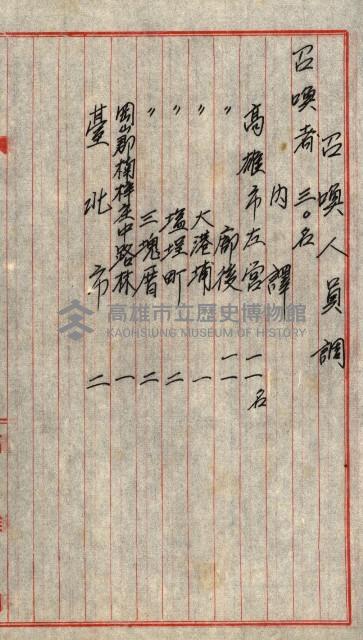 召喚人員調
召喚者 三〇名
内譯
高雄市左宮 一一名
〃 廍後 一一
〃 大港埔 一
〃 塩埕町 二
〃 三塊厝 二
岡山郡楠梓庄中路林 一
臺北市 二
高雄市立歷史博物館
KAOHSIUNG MUSEUM OF HISTORY